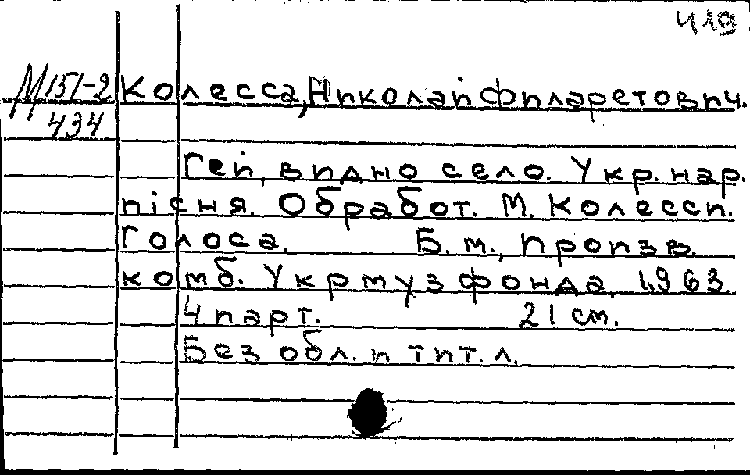 419
М151-2
434
Колесса, Николай Филаретович.
Гей, видно село. Укр. нар.
пісня. Обработ. М. Колесси.
Голоса. Б.м., Произв.
комб. Укрмузфонда, 1963.
4 парт. 21 см.
Без обл. и тит. л.